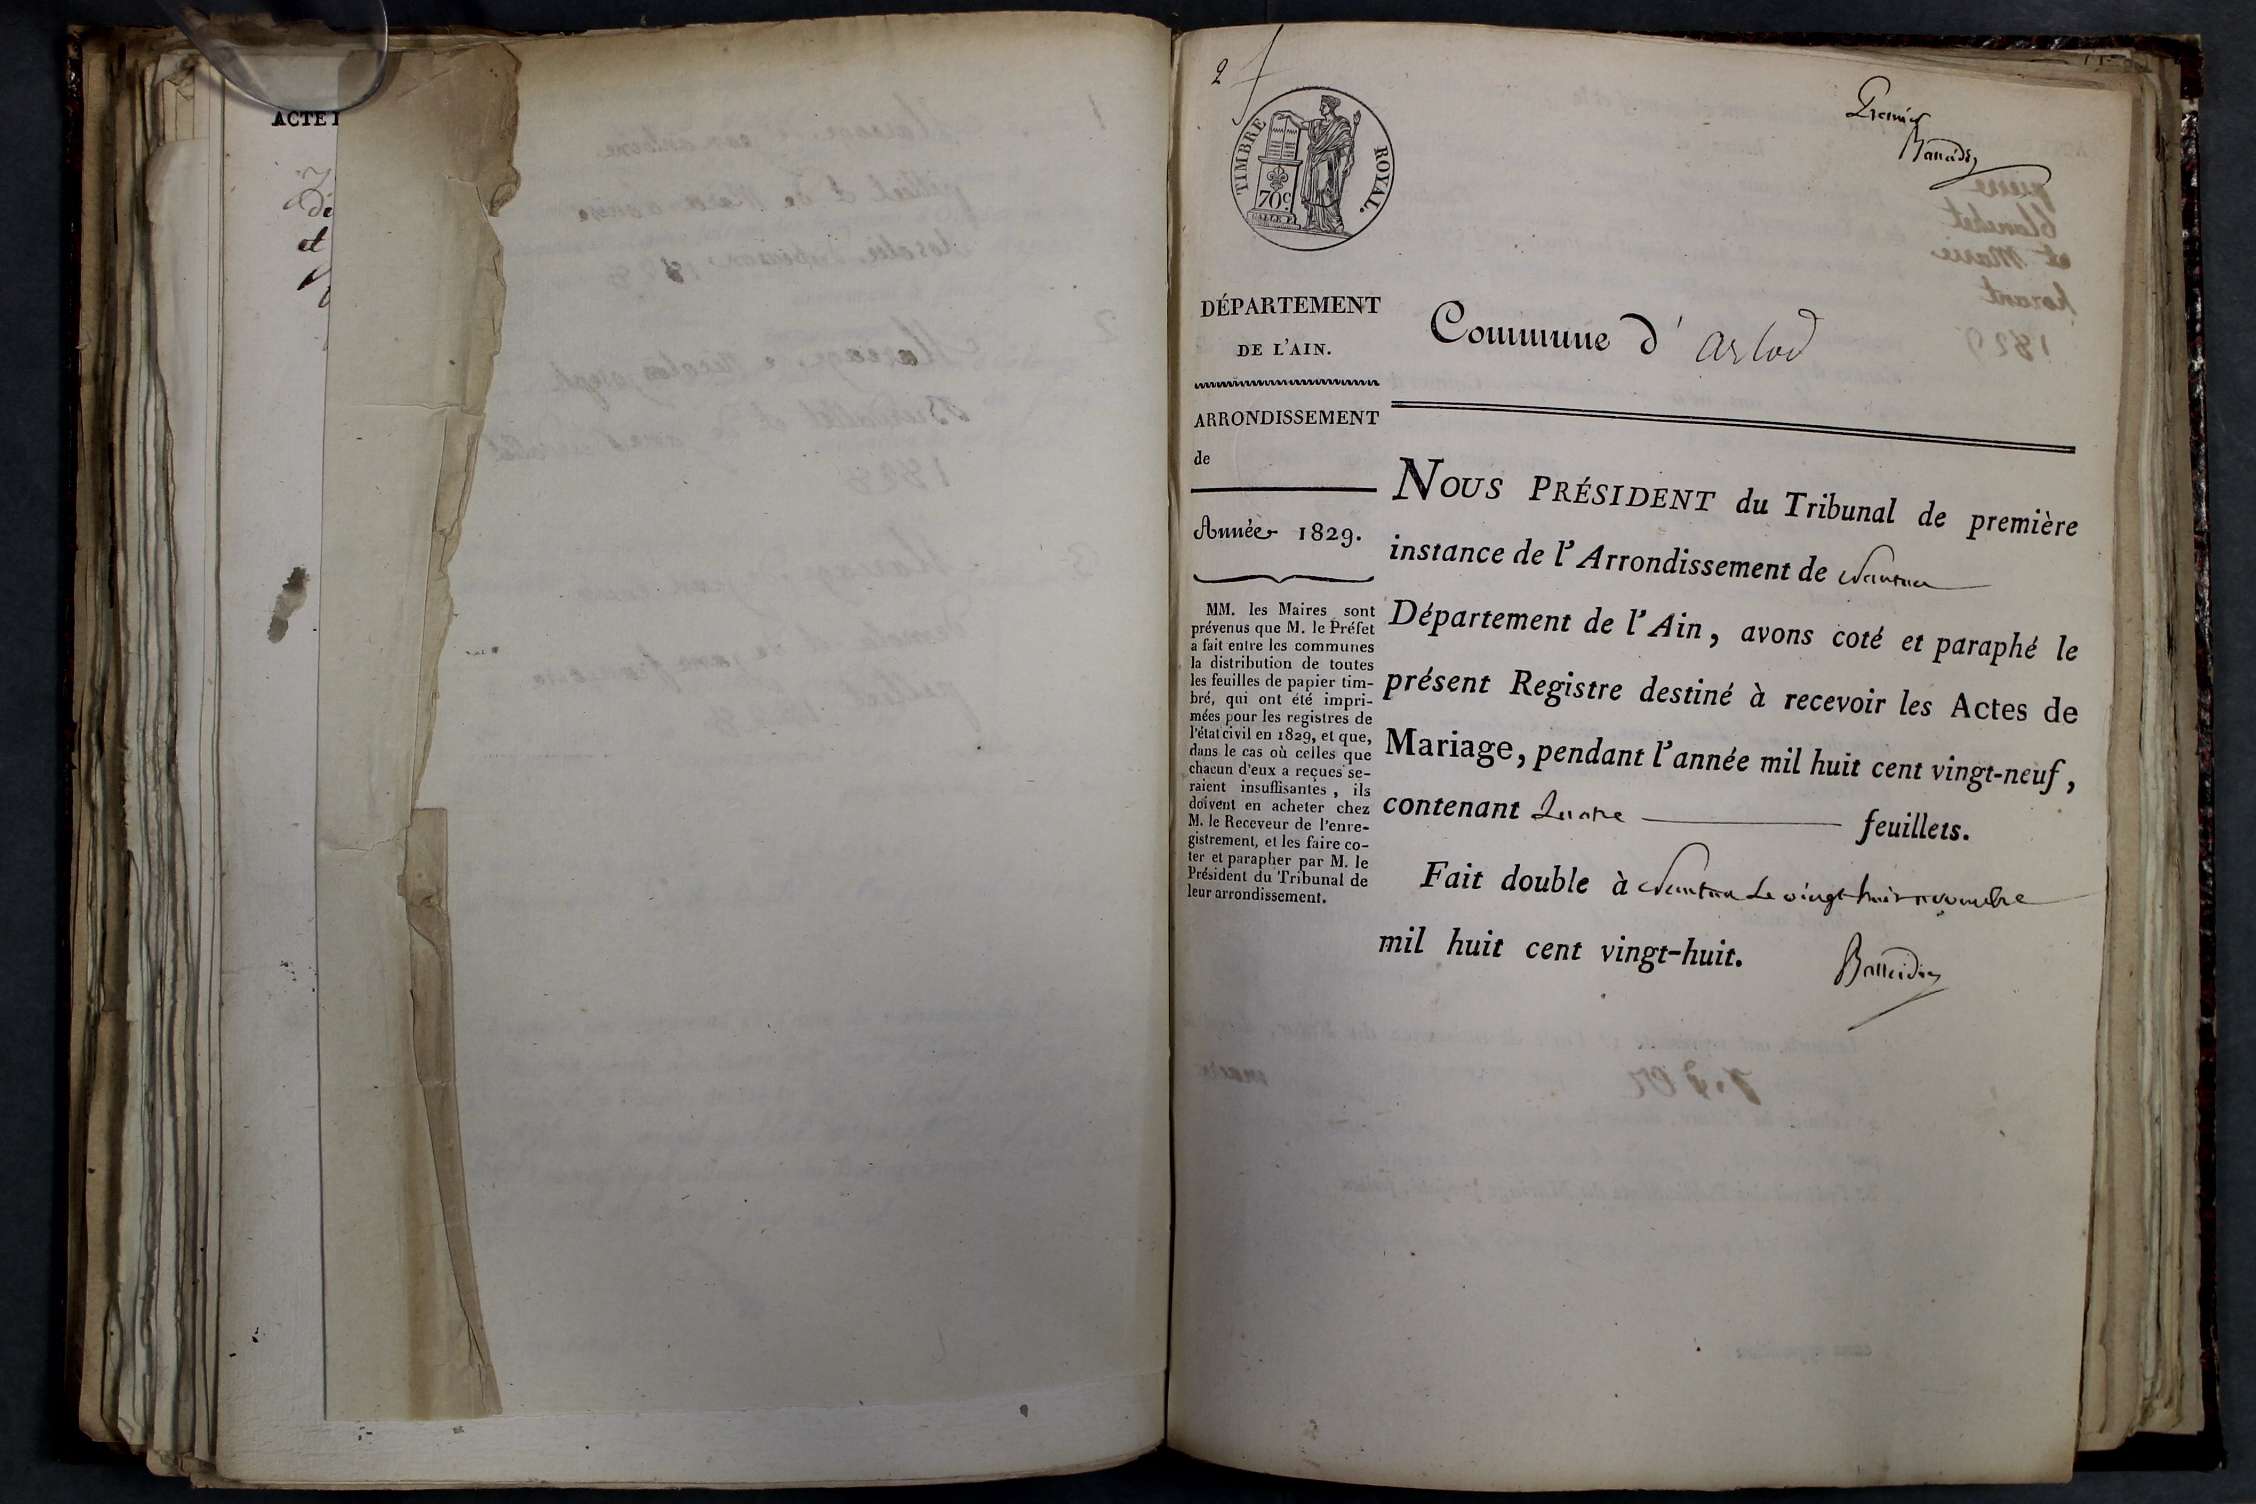 ACTE
di
et
2
TIMBRE ROYAL.
70 c.
Premier
DÉPARTEMENT
DE L'AIN.
Commune d' arlod
ARRONDISSEMENT
de
Année 1829.
MM. les Maires sont
prévenus que M. le Préfet
a fait entre les communes
la distribution de toutes
les feuilles de papier tim-
bré, qui ont été impri-
mées pour les registres de
l'état civil en 1829, et que,
dans le cas où celles que
chacun d'eux a reçues se-
raient insuffisantes, ils
doivent en acheter chez
M. le Receveur de l'enre-
gistrement, et les faire co-
ter et parapher par M. le
Président du Tribunal de
leur arrondissement.
NOUS PRÉSIDENT du Tribunal de première
instance de l'Arrondissement de Nantua
Département de l'Ain, avons coté et paraphé le
présent Registre destiné à recevoir les Actes de
Mariage, pendant l'année mil huit cent vingt-neuf,
contenant quatre feuillets.
Fait double à Nantua Le vingt huit novembre
mil huit cent vingt-huit.